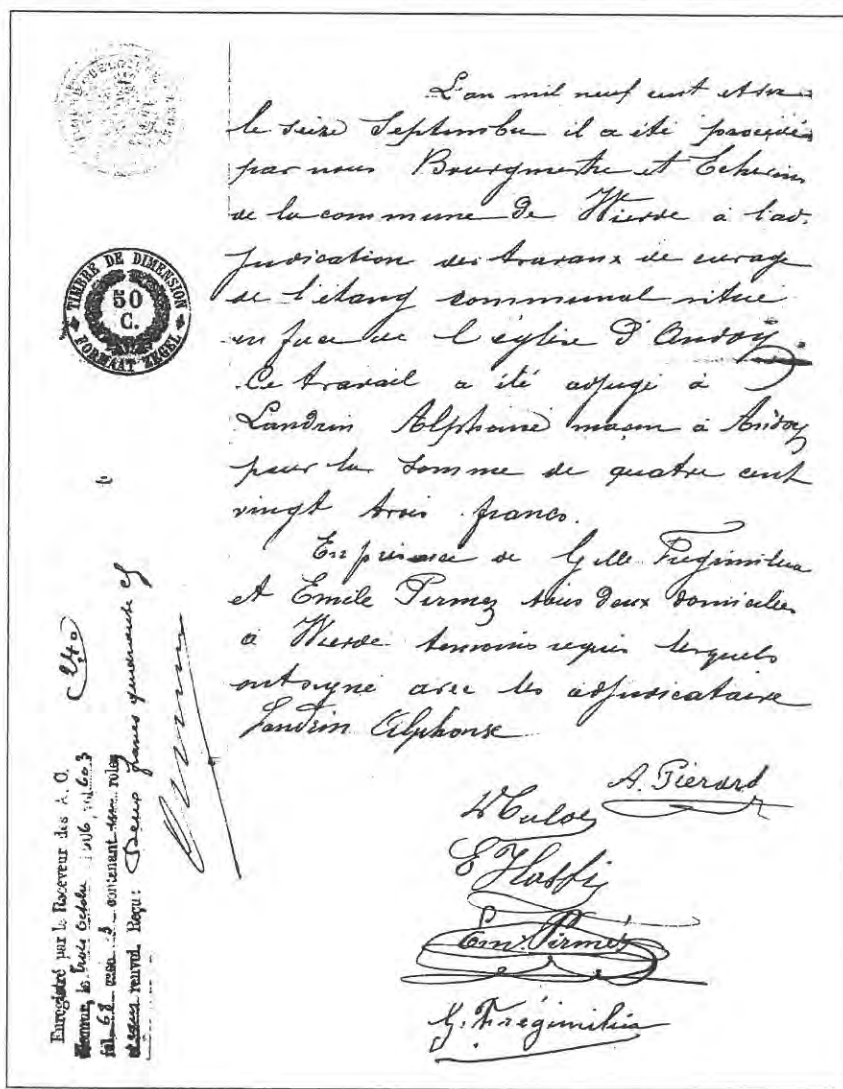 L'an mil neuf cent et six
le seize Septembre il a été procédé
par nous Bourgmestre et Echevins
de la commune de Wierde à l'ad-
judication des travaux de curage
de l'étang communal situé
en face de l'église d'Andoy.
Ce travail a été adjugé à
Landrin Alphonse maçon à Andoy
pour la somme de quatre cent
vingt trois francs.
En présence de G elle Frégimilieu
et Emile Pirmez tous deux domiciliés
à Wierde temoins requis lesquels
ont signé avec les adjudicataire
Landrin Alphonse
A. Piérard
Em. Pirmez
G. Frégimilieu
TIMBRE DE DIMENSION
50
C.
FORMAAT ZEGEL
Enregistré par le Receveur des A. O.
Namur, le trois Octobre 1906, vol 603
fol. 68 case 3 contenant un rôles
et sans renvoi. Reçu: Deux francs quarante cs
2,40